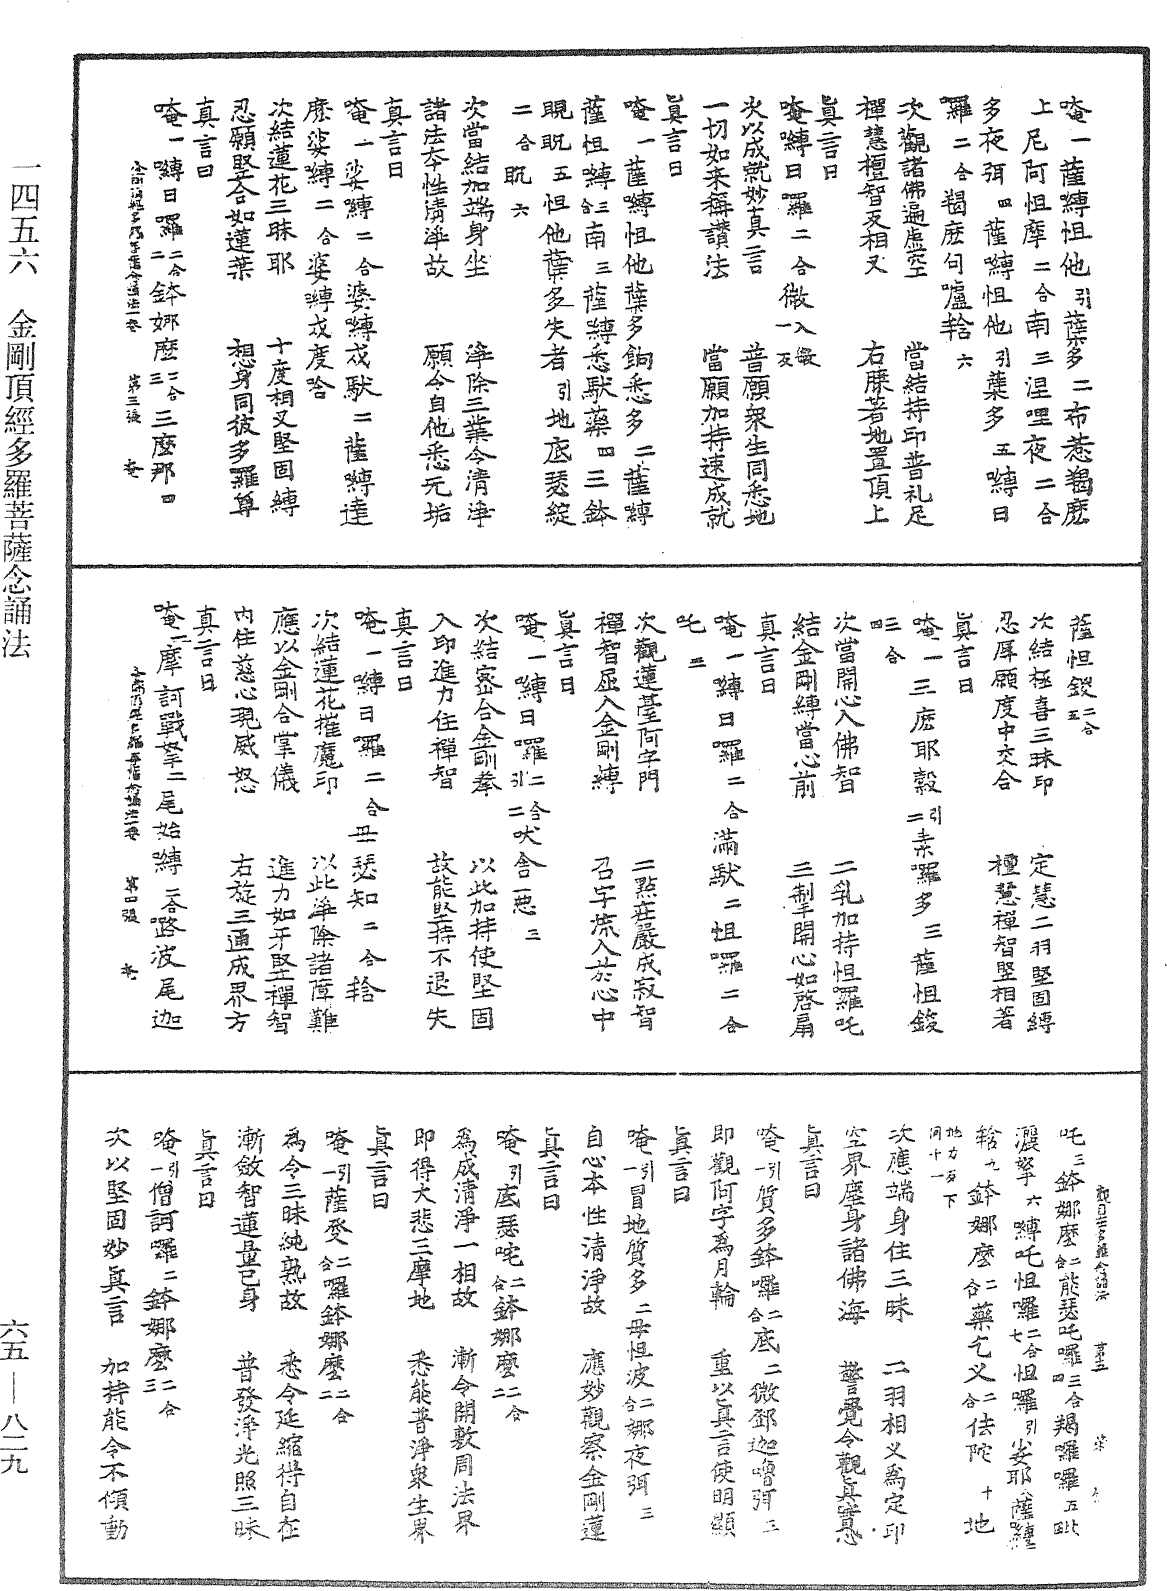 唵一薩嚩怛他引蘖多二布惹羯麽
上尼阿怛摩二合南三涅哩夜二合
多夜弭四薩嚩怛他引蘖多五嚩日
羅二合羯麽句嚧𤙖六
次觀諸佛遍虛空　當結持印普礼足
禪慧檀智反相叉　右膝著地置頂上
真言曰
唵嚩日囉二合微一入
次以成就妙真言　普願衆生同悉地
一切如来稱讃法　當願加持速成就
真言曰
唵一薩嚩怛他蘖多餉悉多二薩嚩
薩怛嚩二合南三薩嚩悉馱藥四三鉢
睍睍五怛他蘖多失者引地底瑟綻
二合睍六
次當結加端身坐　淨除三業令清淨
諸法本性清淨故　願令自他悉无垢
真言曰
唵一娑嚩二合婆嚩戍馱二薩嚩達
麽娑嚩二合婆嚩戍度唅
次結蓮花三昧耶　十度相叉堅固縛
忍願堅合如蓮葉　想身同彼多羅尊
真言曰
唵一嚩日囉二合二鉢娜麽二合三三麽那四
金剛頂經多羅菩薩念誦法一卷　第三張
薩怛鑁二合五
次結極喜三昧印　定慧二羽堅固縛
忍屈願度中交合　檀慧禪智竪相著
真言曰
唵一三麽耶縠引二素囉多三薩怛鑁
二合四
次當開心入佛智　二乳加持怛羅吒
結金剛縛當心前　三掣開心如啓扇
真言曰
唵一嚩日囉二合滿馱二怛囉二合
吒三
次觀蓮臺阿字門　二點莊嚴成寂智
禪智屈入金剛縛　召字流入於心中
真言曰
唵一嚩日囉二合引二吠舍惡三
次結密合金剛拳　以此加持使堅固
入印進力住禪智　故能堅持不退失
真言曰
唵一嚩日囉二合母瑟知二合𤙖
次結蓮花摧魔印　以此淨除諸障難
應以金剛合掌儀　進力如牙堅禪智
内住慈心現威怒　右旋三通成界方
真言曰
唵一摩訶戰拏二尾始嚩二合路波尾迦
第四張
吒三鉢娜麽二合能瑟吒囉二合四羯囉囉五毗
灑拏六嚩吒怛囉二合七怛囉引娑耶八薩嚩
𤙖九鉢娜麽二合藥乞叉二合佉陀十地
地力反下同十一
次應端身住三昧　二羽相叉爲定印
空界塵身諸佛海　警覺令觀真實心
真言曰
唵一引質多鉢囉二合底二微鄧迦嚕弭三
即觀阿字爲月輪　重以真言使明顯
真言曰
唵一引冒地質多二母怛波二合娜夜弭三
自心本性清淨故　應妙觀察金剛蓮
真言曰
唵引底瑟咤二合鉢娜麽二合二
爲成清淨一相故　漸令開敷周法界
即得大悲三摩地　悉能普淨衆生界
真言曰
唵一引薩癹二合囉鉢娜麽二合二
爲令三昧純熟故　悉令延縮得自在
漸斂智蓮量已身　普發淨光照三昧
真言曰
唵一引僧訶囉二鉢娜麽二合三
次以堅固妙真言　加持能令不傾動
一四五六　金剛頂經多羅菩薩念誦法
六五—八二九